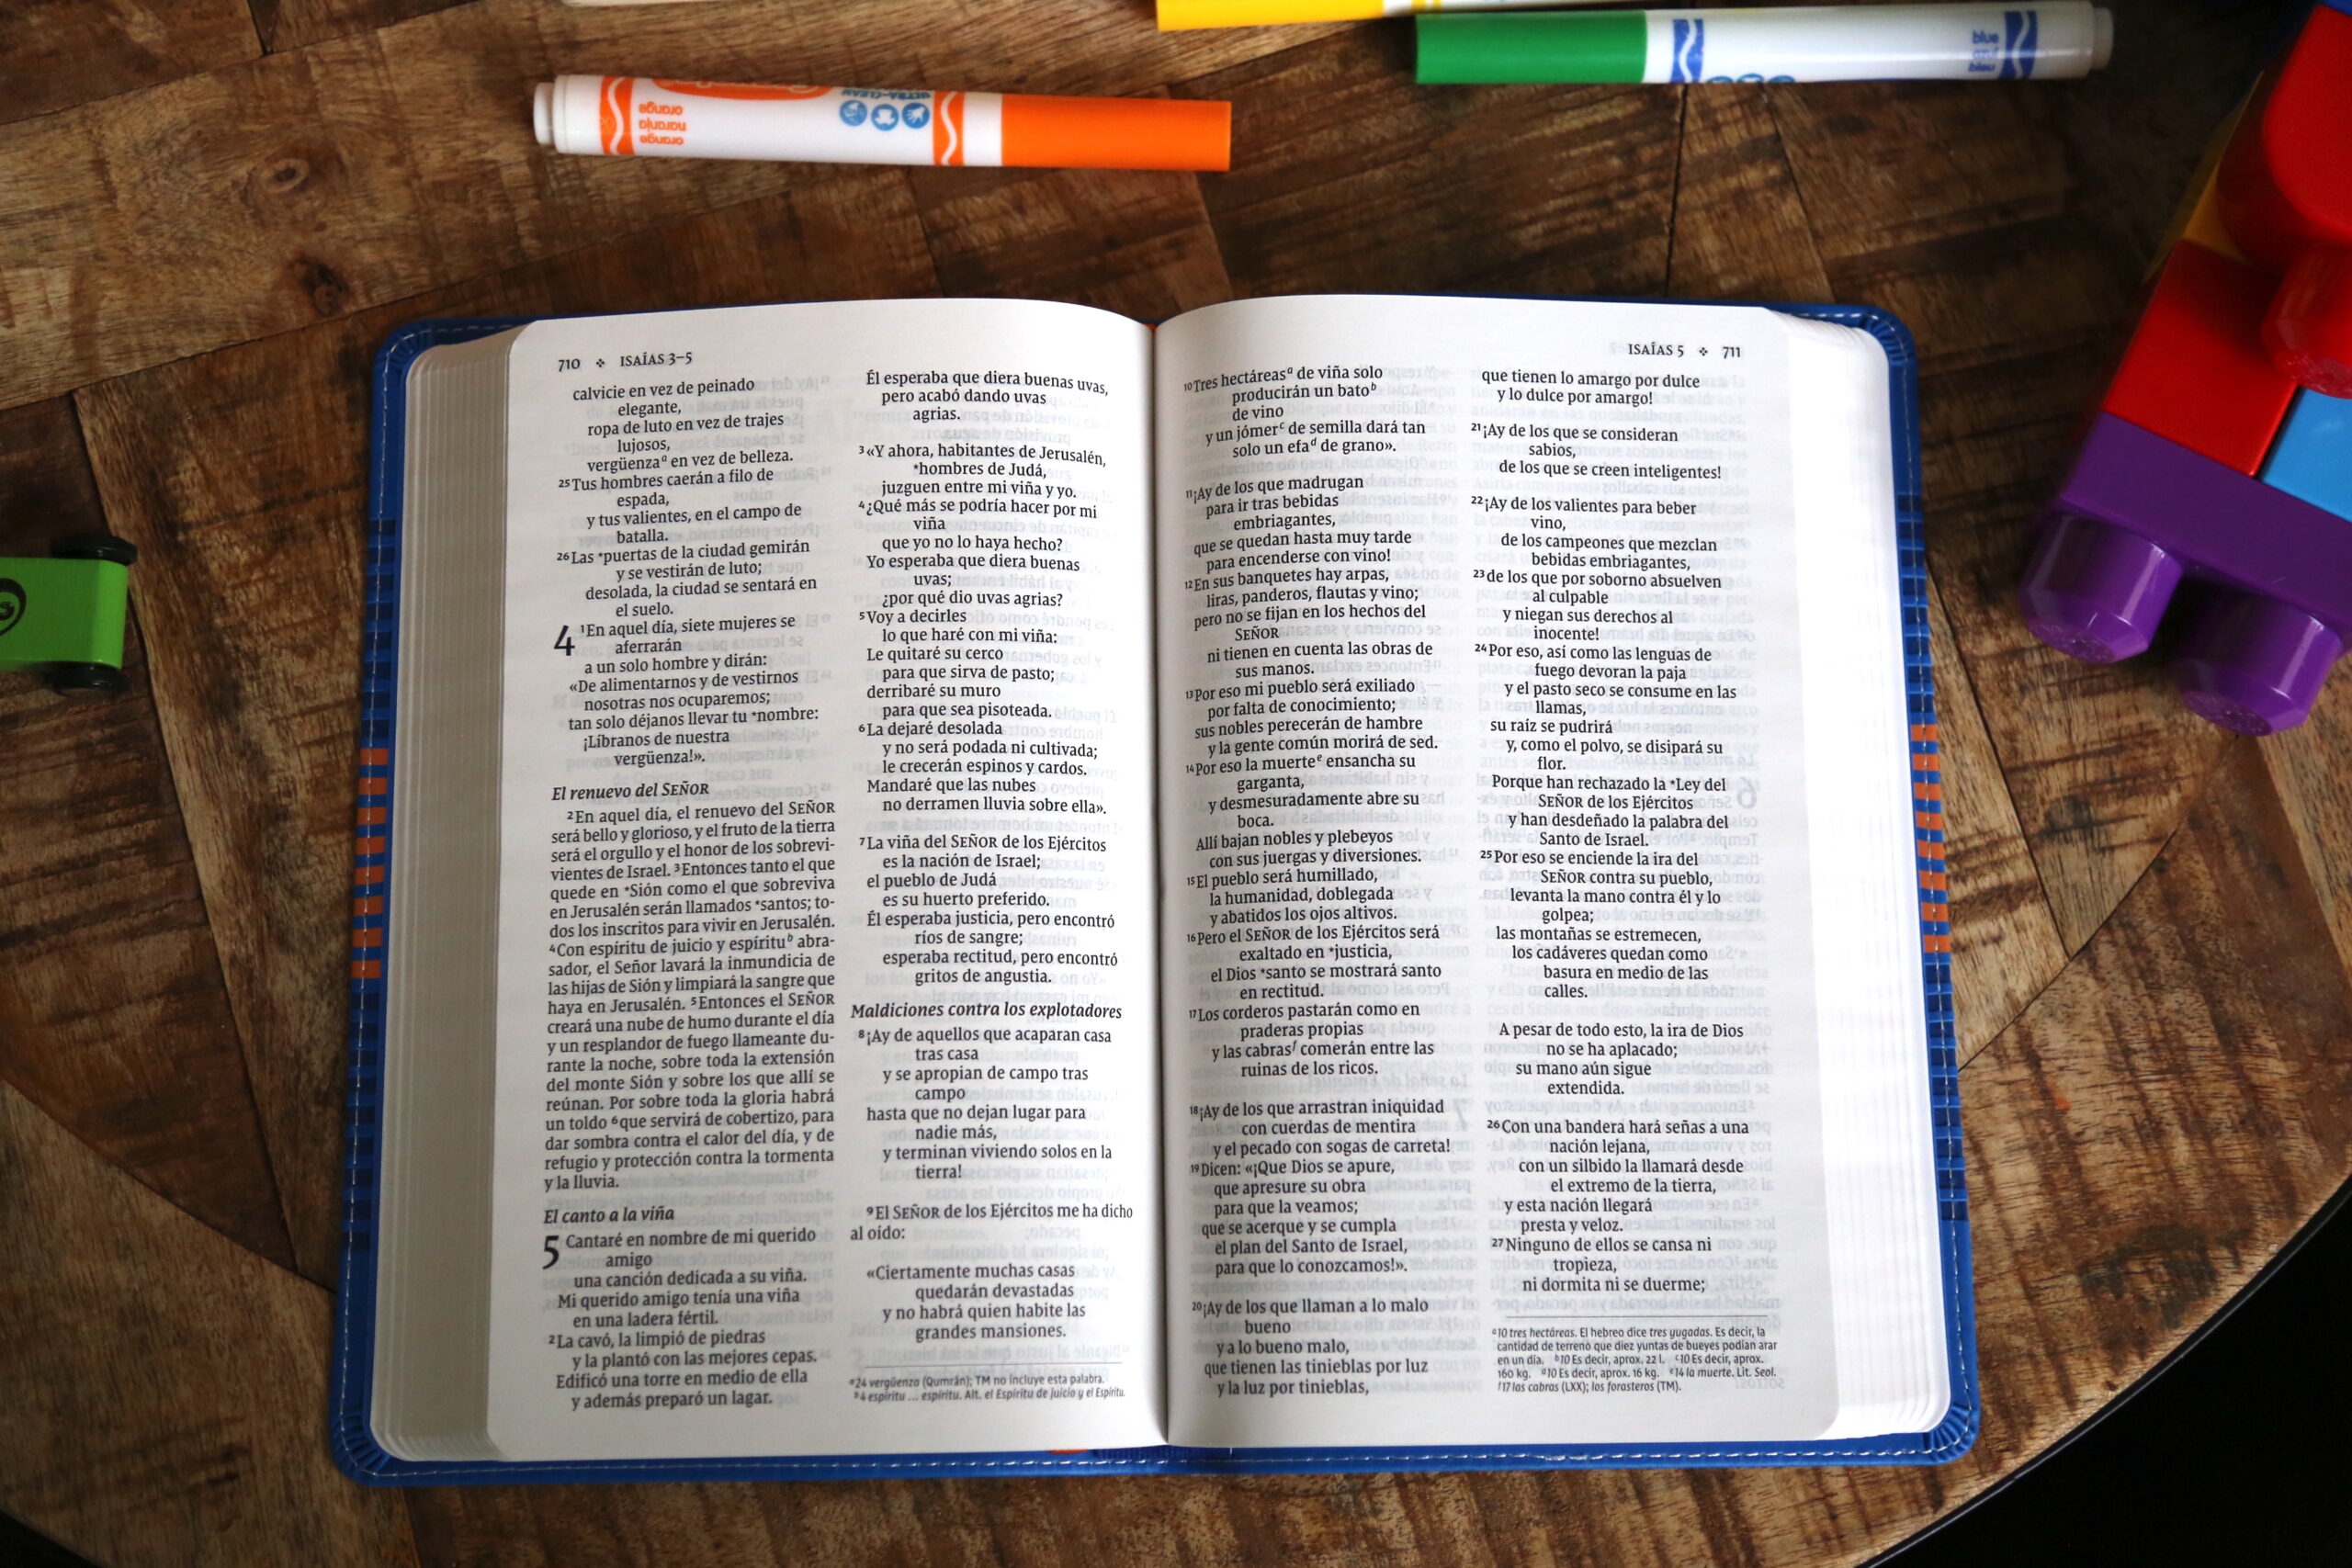 blue
azul
bleu
ULTRA-CLEAN
orange
naranja
orange
710 ❖ ISAÍAS 3–5
calvicie en vez de peinado
elegante,
ropa de luto en vez de trajes
lujosos,
vergüenzaᵃ en vez de belleza.
²⁵Tus hombres caerán a filo de
espada,
y tus valientes, en el campo de
batalla.
²⁶Las *puertas de la ciudad gemirán
y se vestirán de luto;
desolada, la ciudad se sentará en
el suelo.
4 ¹En aquel día, siete mujeres se
aferrarán
a un solo hombre y dirán:
«De alimentarnos y de vestirnos
nosotras nos ocuparemos;
tan solo déjanos llevar tu *nombre:
¡Líbranos de nuestra
vergüenza!».
El renuevo del SEÑOR
²En aquel día, el renuevo del SEÑOR
será bello y glorioso, y el fruto de la tierra
será el orgullo y el honor de los sobrevi-
vientes de Israel. ³Entonces tanto el que
quede en *Sión como el que sobreviva
en Jerusalén serán llamados *santos; to-
dos los inscritos para vivir en Jerusalén.
⁴Con espíritu de juicio y espírituᵇ abra-
sador, el Señor lavará la inmundicia de
las hijas de Sión y limpiará la sangre que
haya en Jerusalén. ⁵Entonces el SEÑOR
creará una nube de humo durante el día
y un resplandor de fuego llameante du-
rante la noche, sobre toda la extensión
del monte Sión y sobre los que allí se
reúnan. Por sobre toda la gloria habrá
un toldo ⁶que servirá de cobertizo, para
dar sombra contra el calor del día, y de
refugio y protección contra la tormenta
y la lluvia.
El canto a la viña
5 Cantaré en nombre de mi querido
amigo
una canción dedicada a su viña.
Mi querido amigo tenía una viña
en una ladera fértil.
²La cavó, la limpió de piedras
y la plantó con las mejores cepas.
Edificó una torre en medio de ella
y además preparó un lagar.
Él esperaba que diera buenas uvas,
pero acabó dando uvas
agrias.
³«Y ahora, habitantes de Jerusalén,
*hombres de Judá,
juzguen entre mi viña y yo.
⁴¿Qué más se podría hacer por mi
viña
que yo no lo haya hecho?
Yo esperaba que diera buenas
uvas;
¿por qué dio uvas agrias?
⁵Voy a decirles
lo que haré con mi viña:
Le quitaré su cerco
para que sirva de pasto;
derribaré su muro
para que sea pisoteada.
⁶La dejaré desolada
y no será podada ni cultivada;
le crecerán espinos y cardos.
Mandaré que las nubes
no derramen lluvia sobre ella».
⁷La viña del SEÑOR de los Ejércitos
es la nación de Israel;
el pueblo de Judá
es su huerto preferido.
Él esperaba justicia, pero encontró
ríos de sangre;
esperaba rectitud, pero encontró
gritos de angustia.
Maldiciones contra los explotadores
⁸¡Ay de aquellos que acaparan casa
tras casa
y se apropian de campo tras
campo
hasta que no dejan lugar para
nadie más,
y terminan viviendo solos en la
tierra!
⁹El SEÑOR de los Ejércitos me ha dicho
al oído:
«Ciertamente muchas casas
quedarán devastadas
y no habrá quien habite las
grandes mansiones.
ᵃ24 vergüenza (Qumrán); TM no incluye esta palabra.
ᵇ4 espíritu … espíritu. Alt. el Espíritu de juicio y el Espíritu.
ISAÍAS 5 ❖ 711
¹⁰Tres hectáreasᵃ de viña solo
producirán un batoᵇ
de vino
y un jómerᶜ de semilla dará tan
solo un efaᵈ de grano».
¹¹¡Ay de los que madrugan
para ir tras bebidas
embriagantes,
que se quedan hasta muy tarde
para encenderse con vino!
¹²En sus banquetes hay arpas,
liras, panderos, flautas y vino;
pero no se fijan en los hechos del
SEÑOR
ni tienen en cuenta las obras de
sus manos.
¹³Por eso mi pueblo será exiliado
por falta de conocimiento;
sus nobles perecerán de hambre
y la gente común morirá de sed.
¹⁴Por eso la muerteᵉ ensancha su
garganta,
y desmesuradamente abre su
boca.
Allí bajan nobles y plebeyos
con sus juergas y diversiones.
¹⁵El pueblo será humillado,
la humanidad, doblegada
y abatidos los ojos altivos.
¹⁶Pero el SEÑOR de los Ejércitos será
exaltado en *justicia,
el Dios *santo se mostrará santo
en rectitud.
¹⁷Los corderos pastarán como en
praderas propias
y las cabrasᶠ comerán entre las
ruinas de los ricos.
¹⁸¡Ay de los que arrastran iniquidad
con cuerdas de mentira
y el pecado con sogas de carreta!
¹⁹Dicen: «¡Que Dios se apure,
que apresure su obra
para que la veamos;
que se acerque y se cumpla
el plan del Santo de Israel,
para que lo conozcamos!».
²⁰¡Ay de los que llaman a lo malo
bueno
y a lo bueno malo,
que tienen las tinieblas por luz
y la luz por tinieblas,
que tienen lo amargo por dulce
y lo dulce por amargo!
²¹¡Ay de los que se consideran
sabios,
de los que se creen inteligentes!
²²¡Ay de los valientes para beber
vino,
de los campeones que mezclan
bebidas embriagantes,
²³de los que por soborno absuelven
al culpable
y niegan sus derechos al
inocente!
²⁴Por eso, así como las lenguas de
fuego devoran la paja
y el pasto seco se consume en las
llamas,
su raíz se pudrirá
y, como el polvo, se disipará su
flor.
Porque han rechazado la *Ley del
SEÑOR de los Ejércitos
y han desdeñado la palabra del
Santo de Israel.
²⁵Por eso se enciende la ira del
SEÑOR contra su pueblo,
levanta la mano contra él y lo
golpea;
las montañas se estremecen,
los cadáveres quedan como
basura en medio de las
calles.
A pesar de todo esto, la ira de Dios
no se ha aplacado;
su mano aún sigue
extendida.
²⁶Con una bandera hará señas a una
nación lejana,
con un silbido la llamará desde
el extremo de la tierra,
y esta nación llegará
presta y veloz.
²⁷Ninguno de ellos se cansa ni
tropieza,
ni dormita ni se duerme;
ᵃ10 tres hectáreas. El hebreo dice tres yugadas. Es decir, la
cantidad de terreno que diez yuntas de bueyes podían arar
en un día. ᵇ10 Es decir, aprox. 22 l. ᶜ10 Es decir, aprox.
160 kg. ᵈ10 Es decir, aprox. 16 kg. ᵉ14 la muerte. Lit. Seol.
ᶠ17 las cabras (LXX); los forasteros (TM).